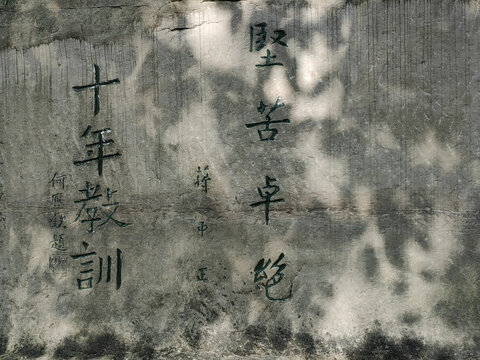 堅苦卓絕
蔣中正
十年教訓
何應欽題